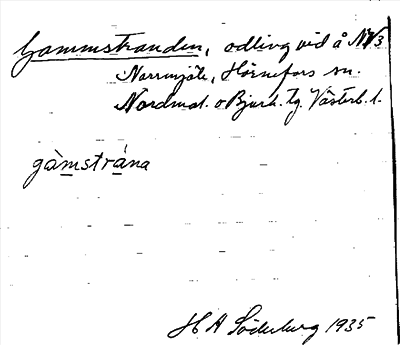 Gammstranden, odling vid å NV3
Norrmjöle, Hörnefors sn.
Nordmal. o Bjurh. tg. Västerb. l.
gàmstrána
H A Söderberg 1935